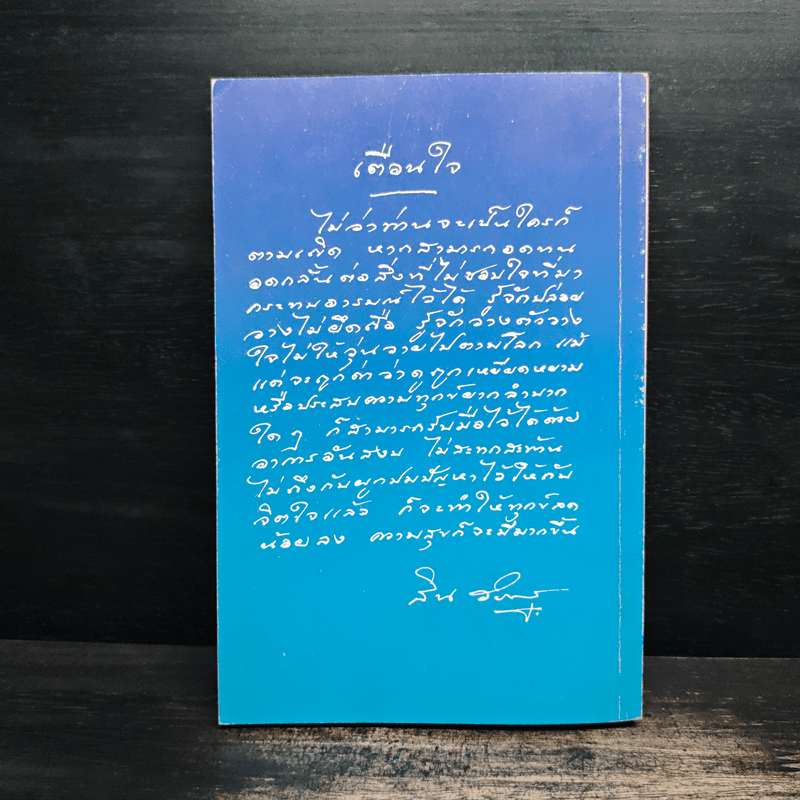 เตือนใจ
ไม่ว่าท่านจะเป็นใครก็
ตามเถิด หากสามารถอดทน
อดกลั้นต่อสิ่งที่ไม่ชอบใจที่มา
กระทบอารมณ์ไว้ได้ รู้จักปล่อย
วางไม่ยึดถือ รู้จักวางตัววาง
ใจไม่ให้วุ่นวายไปตามโลก แม้
แต่จะถูกด่าว่าดูถูกเหยียดหยาม
หรือประสบความทุกข์ยากลำบาก
ใดๆ ก็สามารถรับมือไว้ได้ด้วย
อาการอันสงบ ไม่สะทกสะท้าน
ไม่ถึงกับผูกปมปัญหาไว้ให้กับ
จิตใจแล้ว ก็จะทำให้ทุกข์ลด
น้อยลง ความสุขก็จะมีมากขึ้น
สิน